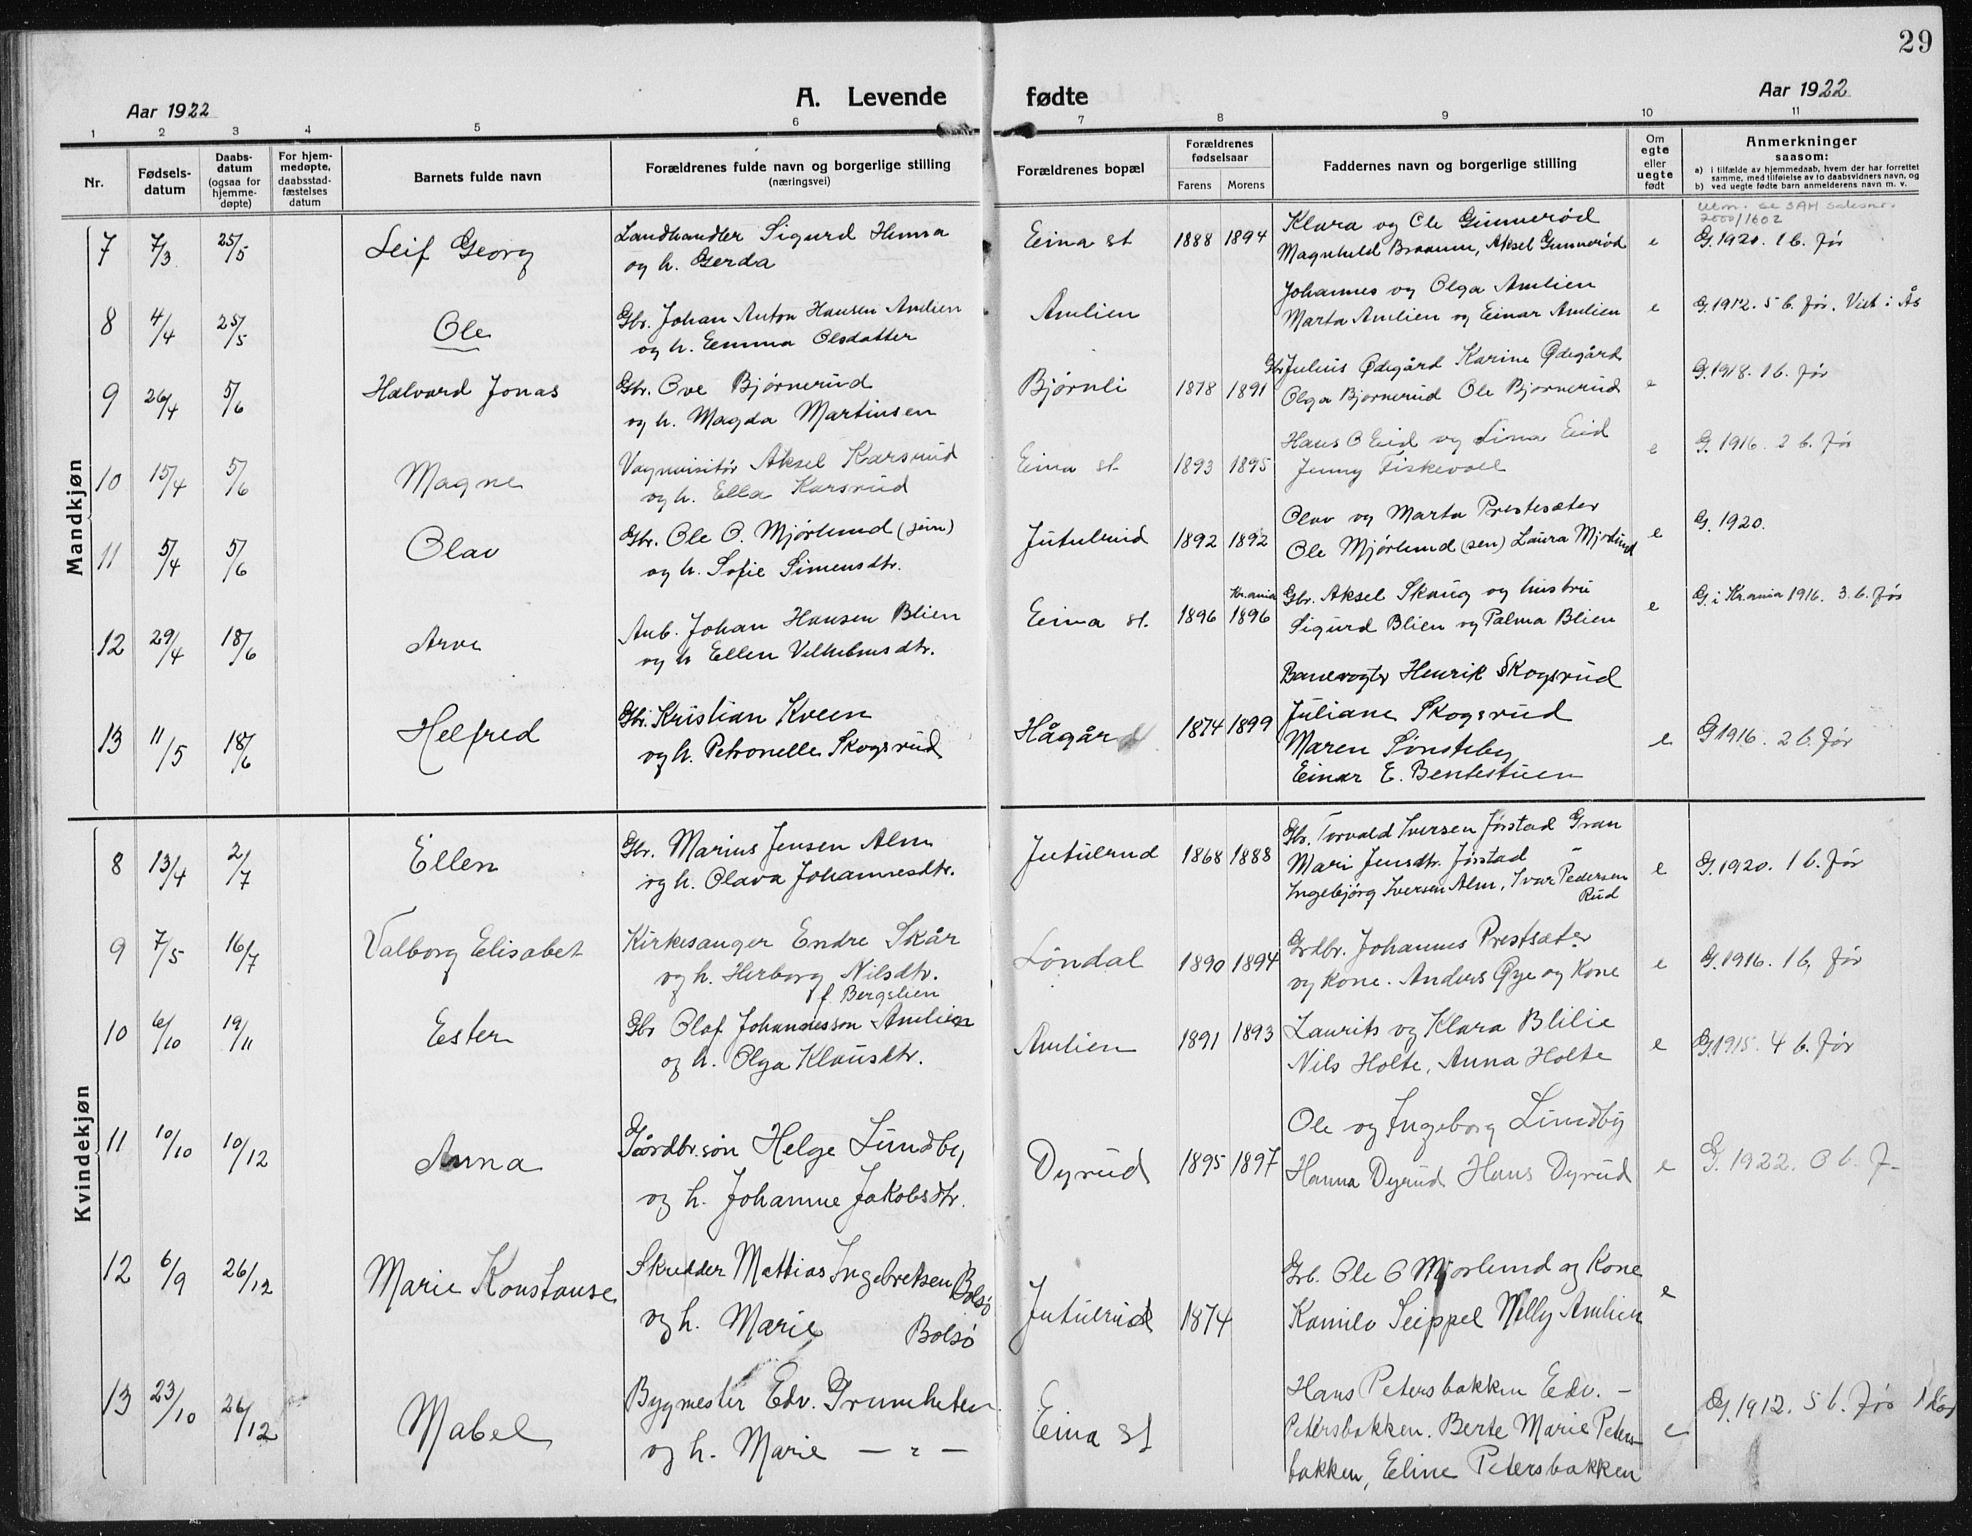 29
Aar 1922
A. Levende fødte
Aar 1922
1 2 3 4 5 6 7 8 9 10 11
Nr.
Fødsels-
datum
Daabs-
datum
(ogsaa for
hjemme-
døpte)
For hjem-
medøpte,
daabsstad-
fæstelses
datum
Barnets fulde navn
Forældrenes fulde navn og borgerlige stilling
(næringsvei)
Forældrenes bopæl
Forældrenes
fødselsaar
Farens Morens
Faddernes navn og borgerlige stilling
Om
egte
eller
uegte
født
Anmerkninger
saasom:
a) i tilfælde av hjemmedaab, hvem der har forrettet
samme, med tilføielse av to daabsvidners navn, og
b) ved uegte fødte barn anmelderens navn m. v.
Mandkjøn
2000/1602
7 7/3 25/5 Leif Georg Landhandler Sigurd
og h. Gerda
Eina st 1888 1894 Klara og Ole Gunnerød
Magnhild Braaum, Aksel Gunnerød e G. 1920. 1 b. før
8 4/4 25/5 Ole Gbr. Johan Anton Hansen Amlien
og h. Emma Olsdatter
Amlien Johannes og Olga Amlien
Marta Amlien og Einar Amlien e G. 1912. 5 b. før. Viet i Ås
9 26/4 5/6 Halvard Jonas Gbr. Ove Bjørnerud
og h. Magda Martinsen
Bjørnli 1878 1891 Gbr Julius Ødegård Karine Ødegård
Olga Bjørnerud Ole Bjørnerud e G. 1918. 1 b. før
10 15/4 5/6 Magne Vognvisitør Aksel Karsrud
og h. Ella Karsrud
Eina st. 1893 1895 Hans O Eid og Lina Eid
Jenny Fiskevoll e G. 1916. 2 b. før
11 5/4 5/6 Olav Gbr. Ole O. Mjørlund (jun)
og h. Sofie Simensdtr.
Jutulrud 1892 1892 Olav og Marta Prestesæter
Ole Mjørlund (sen) Laura Mjørlund e G. 1920.
12 29/4 18/6 Arve Arb. Johan Hansen Blien
og h Ellen Vilhelmsdtr.
Eina st. 1896 Kr.ania 1896 Gbr. Aksel Skaug og hustru
Sigurd Blien og Palma Blien e G. i Kr.ania 1916. 3. b. før
13 11/5 18/6 Helfred Gbr. Kristian Kveen
og h. Petronelle Skogsrud
Hågår 1874 1899 Banevogter Henrik Skogsrud
Juliane Skogsrud
Maren Sønsteby
Einar E. Bentestuen e G 1916. 2 b. før
Kvindekjøn
8 13/4 2/7 Ellen Gbr. Marius Jensen Alm
og h. Olava Johannesdtr.
Jutulrud 1868 1888 Gbr. Torvald Iversen Jørstad Gran
Mari Jensdtr. Jørstad –
Ingebjørg Iversen Alm, Ivar Pedersen
Rud e G. 1920. 1 b. før
9 7/5 16/7 Valborg Elisabet Kirkesanger Endre Skår
og h. Herborg Nilsdtr.
f. Bergslien
Løndal 1890 1894 Grdbr. Johannes Prestsæter
og kone. Anders Øye og Kone e G. 1916. 1 b, før
10 6/10 19/11 Ester Gbr Olaf Johannesson Amlien
og h. Olga Klausdtr.
Amlien 1891 1893 Laurits og Klara Blilie
Nils Holte, Anna Holte e G. 1915. 4 b. før
11 10/10 10/12 Anna Gårdbr.søn Helge Lundby
og h. Johanne Jakobsdtr.
Dyrud 1895 1897 Ole og Ingeborg Lundby
Hanna Dyrud Hans Dyrud e G. 1922. 0 b. f.
12 6/9 26/12 Marie Konstanse Skredder Mattias Ingebretsen Bolsø
og h. Marie Bolsø
Jutulrud 1874 Grb. Ole O Mjørlund og Kone
Kamilo Seippel Willy Amlien e
13 23/10 26/12 Mabel Bygmester Edv.
og h. Marie — " —
Eina st Hans Petersbakken Edv. –
Petersbakken. Berte Marie Peters-
bakken, Eline Petersbakken e G. 1912. 5 b. før 1 død